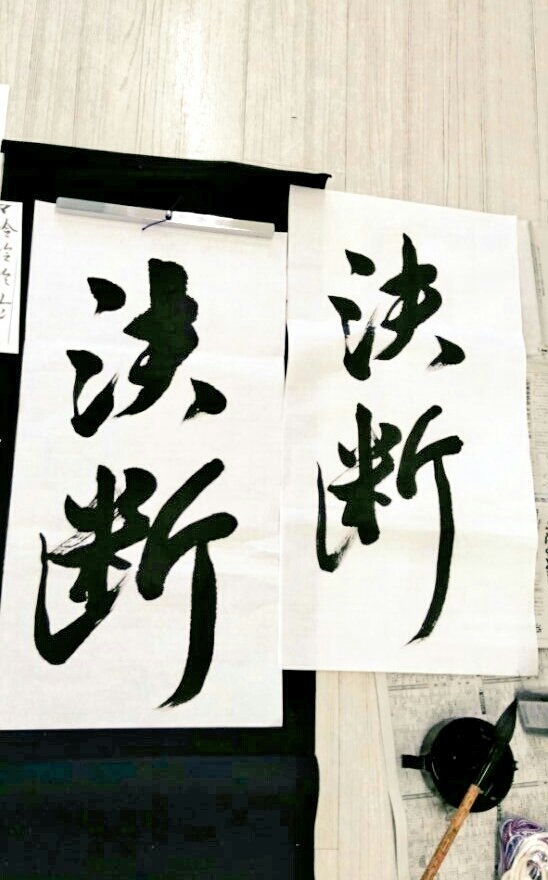 決断
決断